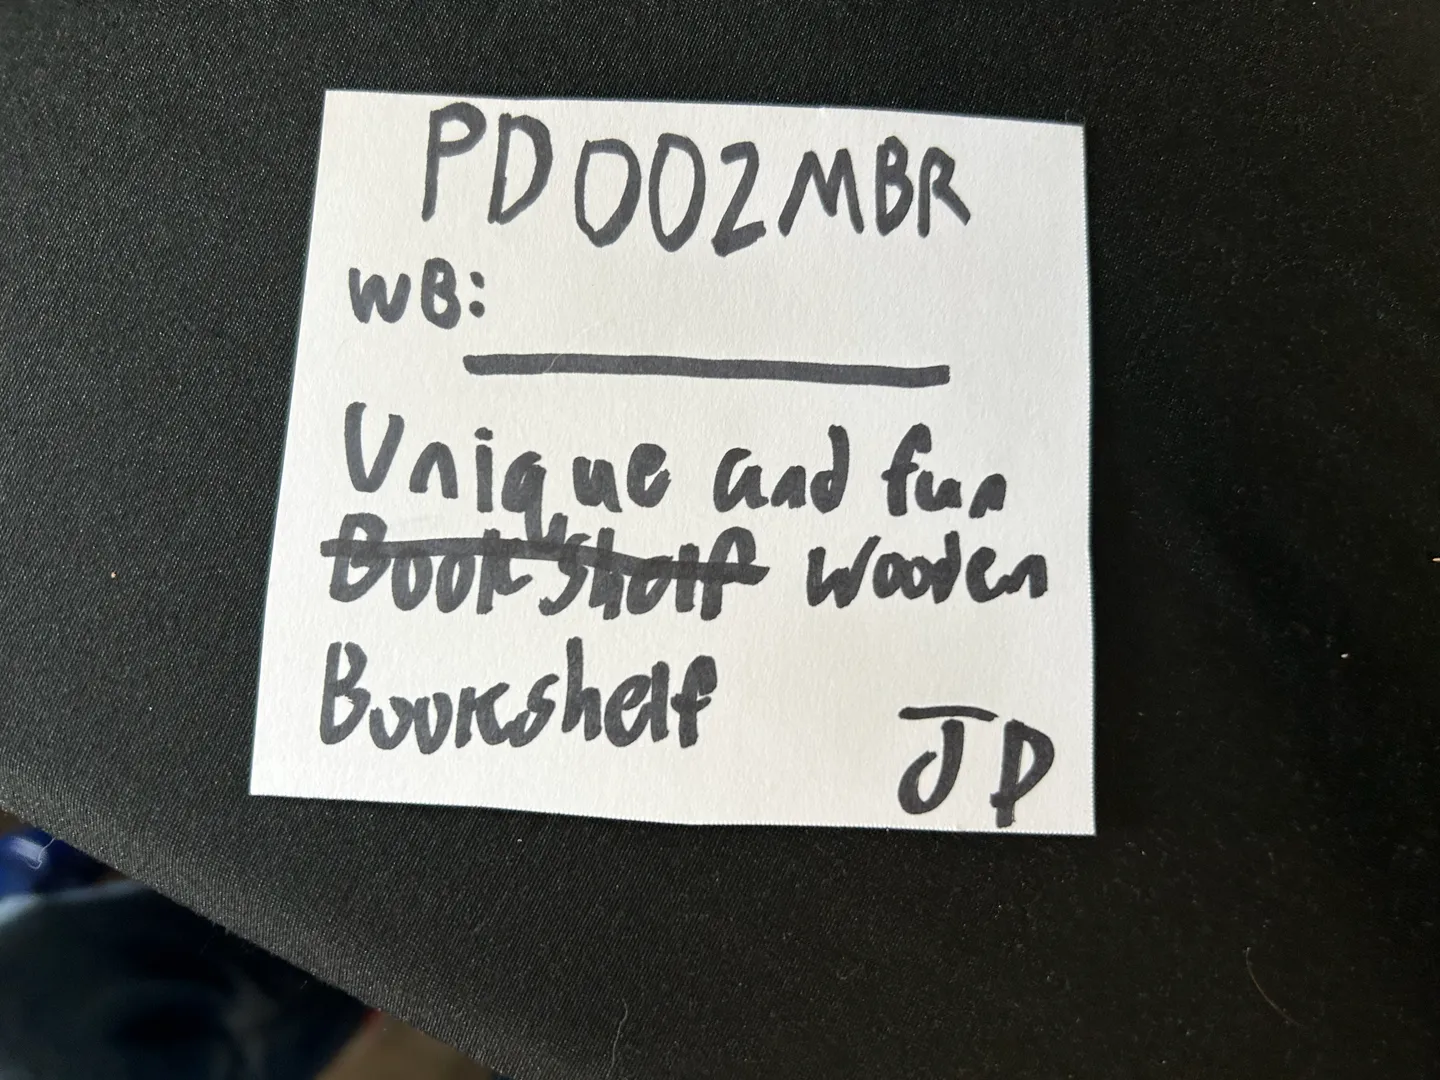 PD002MBR
WB:
Unique and fun
Bookshelf wooden
Bookshelf
JP